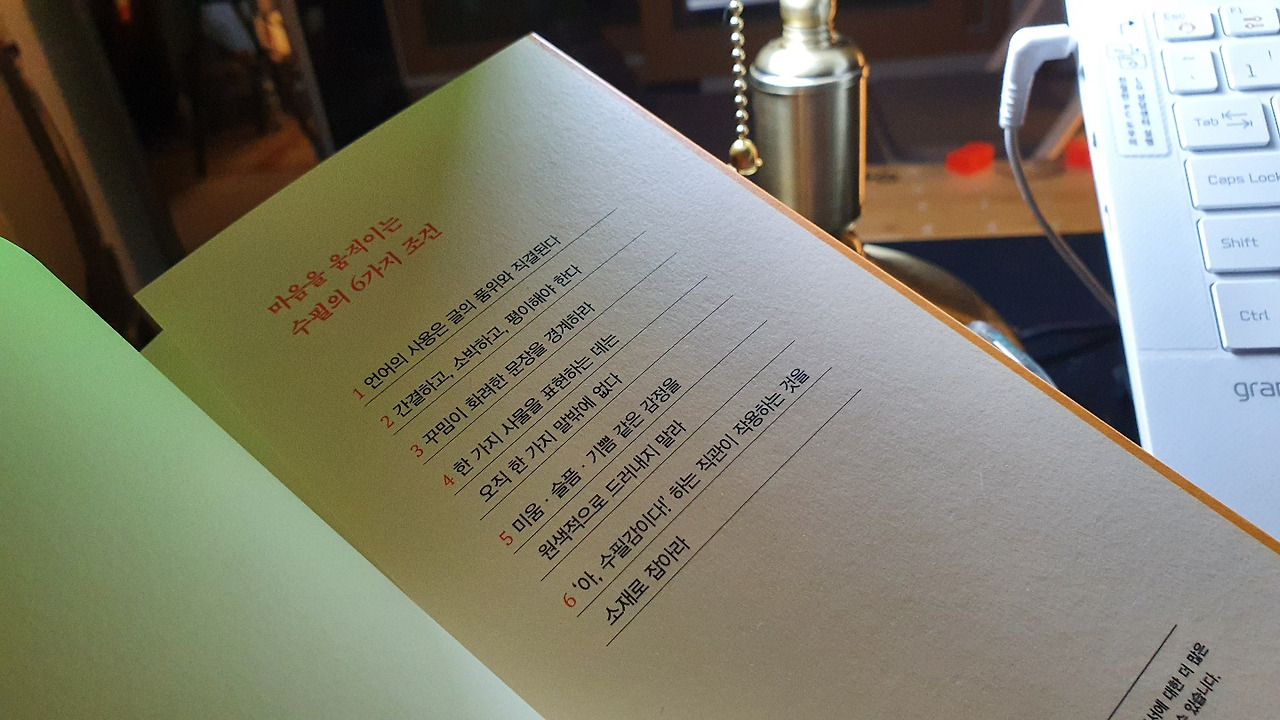 마음을 움직이는
수필의 6가지 조건
1 언어의 사용은 글의 품위와 직결된다
2 간결하고, 소박하고, 평이해야 한다
3 꾸밈이 화려한 문장을 경계하라
4 한 가지 사물을 표현하는 데는
오직 한 가지 말밖에 없다
5 미움·슬픔·기쁨 같은 감정을
원색적으로 드러내지 말라
6 '아, 수필감이다!' 하는 직관이 작용하는 것을
소재로 잡아라
서에 대한 더 많은
수 있습니다.
Esc F1
1 !
Tab
Caps Lock
Shift
Ctrl
gram